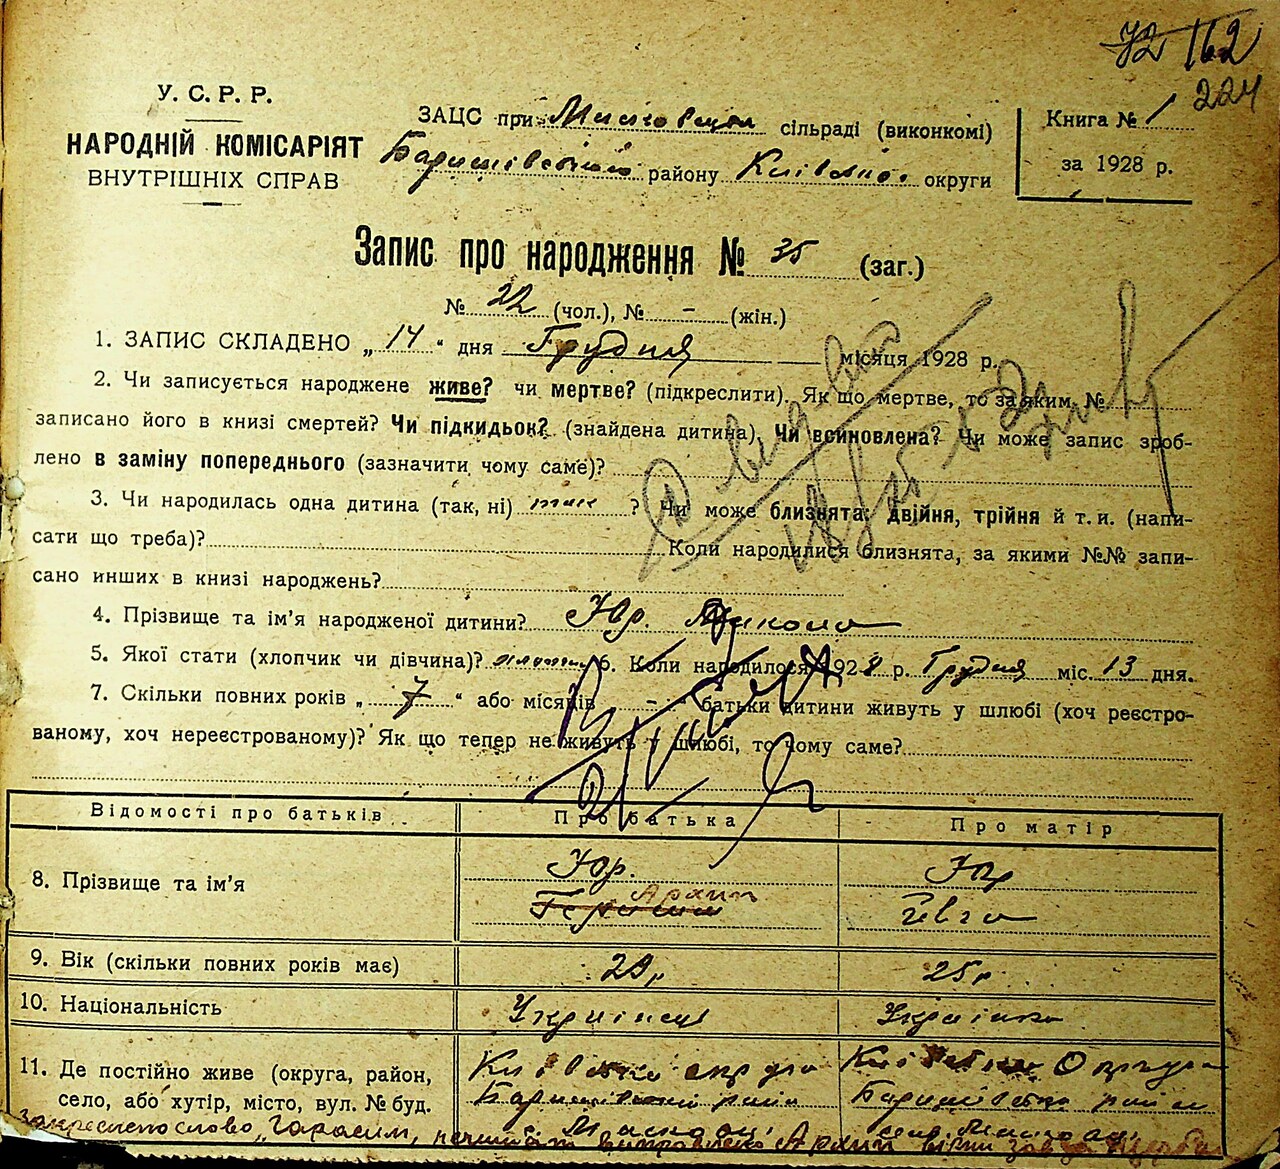 72 162
224
У. С. Р. Р.
НАРОДНІЙ КОМІСАРІЯТ
ВНУТРІШНІХ СПРАВ
ЗАЦС при сільраді (виконкомі)
Баришівськім району Київської округи
Книга № 1
за 1928 р.
Запис про народження № 35 (заг.)
№ 22 (чол.), № - (жін.)
1. ЗАПИС СКЛАДЕНО „ 14 “ дня Грудня місяця 1928 р.
2. Чи записується народжене живе? чи мертве? (підкреслити). Як що мертве, то за яким №
записано його в книзі смертей? Чи підкидьок? (знайдена дитина). Чи всиновлена? Чи може запис зроб-
лено в заміну попереднього (зазначити чому саме)?
3. Чи народилась одна дитина (так, ні) так ? Чи може близнята: двійня, трійня й т. и. (напи-
сати що треба)? Коли народилися близнята, за якими №№ запи-
сано инших в книзі народжень?
4. Прізвище та ім’я народженої дитини? Юр. Микола
5. Якої стати (хлопчик чи дівчина)? 6. Коли народилося 1928 р. Грудня міс. 13 дня.
7. Скільки повних років „ 7 “ або місяців - батьки дитини живуть у шлюбі (хоч реєстро-
ваному, хоч нереєстрованому)? Як що тепер не живуть у шлюбі, то чому саме?
Відомості про батьків Про батька Про матір
8. Прізвище та ім’я Юр. Юр
Архип Євга
9. Вік (скільки повних років має) 29 р 25 р
10. Національність Українець Українка
11. Де постійно живе (округа, район, Київська округа Київська Округа
село, або хутір, місто, вул. № буд. Баришівський район Баришівський район
закреслено слово „Гарасим, виправлено Архип вірно